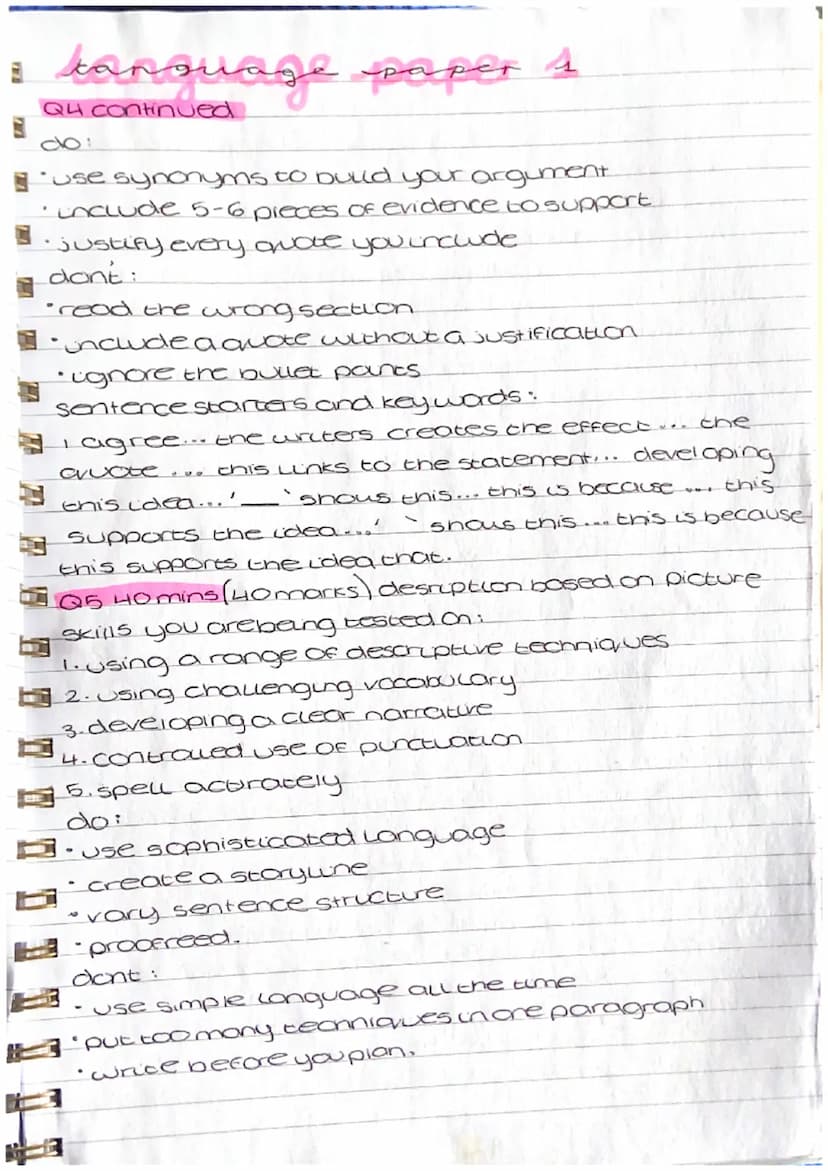 language paper 1
Q4 continued
do:
· use synonyms to build your argument
· include 5-6 pieces of evidence to support
· justify every quote you include
dont:
· read the wrong section
· include a quote without a justification
· ignore the bullet points
sentence starters and key words:
I agree... the writers creates the effect... the
quote ... this links to the statement... developing
this idea...'__' shows this... this is because ... this
supports the idea...' ' shows this... this is because
this supports the idea that.
Q5 40 mins (40 marks) desription based on picture
skills you are being tested on:
1. using a range of descriptive techniques
2. using challenging vocabulary
3. developing a clear narrative
4. controlled use of punctuation
5. spell accurately
do:
· use sophisticated language
· create a storyline
· vary sentence structure
· proofreed.
dont:
· use simple language all the time
· put too many techniques in one paragraph
· write before you plan.